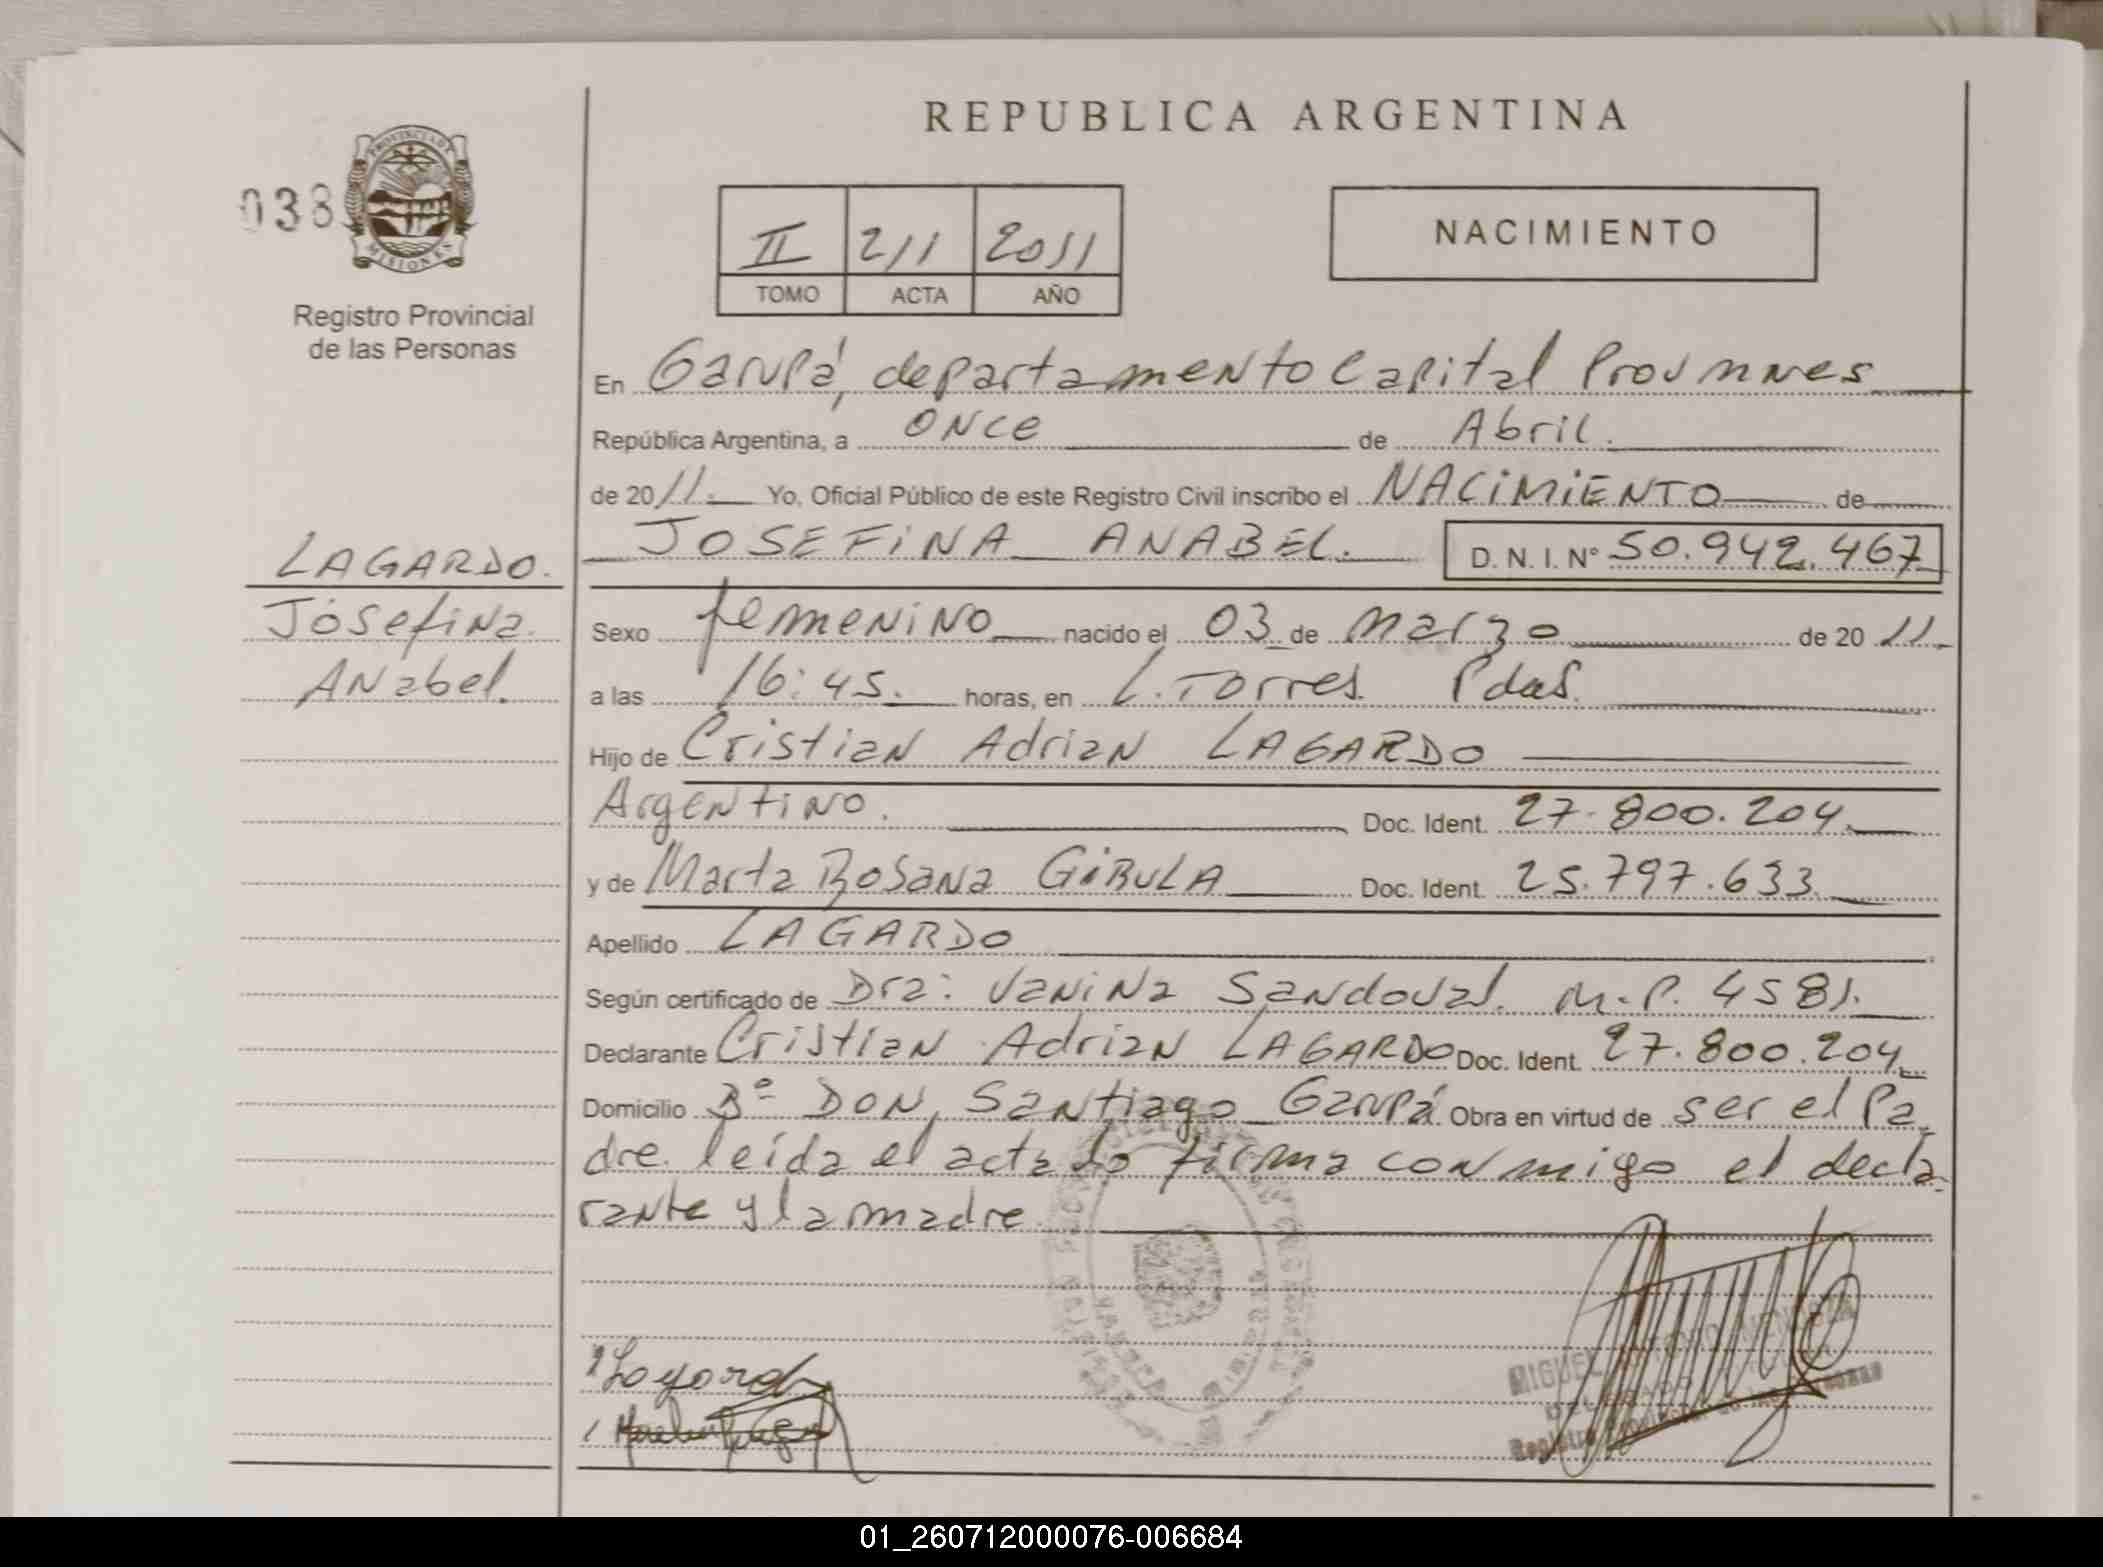 REPUBLICA ARGENTINA
038
PROVINCIA DE MISIONES
Registro Provincial
de las Personas
II 211 2011
TOMO ACTA AÑO
NACIMIENTO
En Garupá, departamento Capital Prov mnes
República Argentina, a once de Abril.
de 2011. Yo, Oficial Público de este Registro Civil inscribo el NACIMIENTO de
JOSEFINA ANABEL. D. N. I. Nº 50.942.467
LAGARDO.
Josefina
Anabel.
Sexo femenino nacido el 03 de marzo de 2011.
a las 16:45. horas, en L. Torres Pdas.
Hijo de Cristian Adrian LAGARDO
Argentino. Doc. Ident. 27.800.204.
y de Marta Rosana GIRULA Doc. Ident. 25.797.633.
Apellido LAGARDO
Según certificado de Dra: Vanina Sandoval. M.P. 4581.
Declarante Cristian Adrian LAGARDO Doc. Ident. 27.800.204.
Domicilio Bº DON Santiago Garupá. Obra en virtud de ser el Pa
dre leída el acta la firma conmigo el decla
rante y la madre
MIGUEL
Registro Provincial de las Personas
01_260712000076-006684